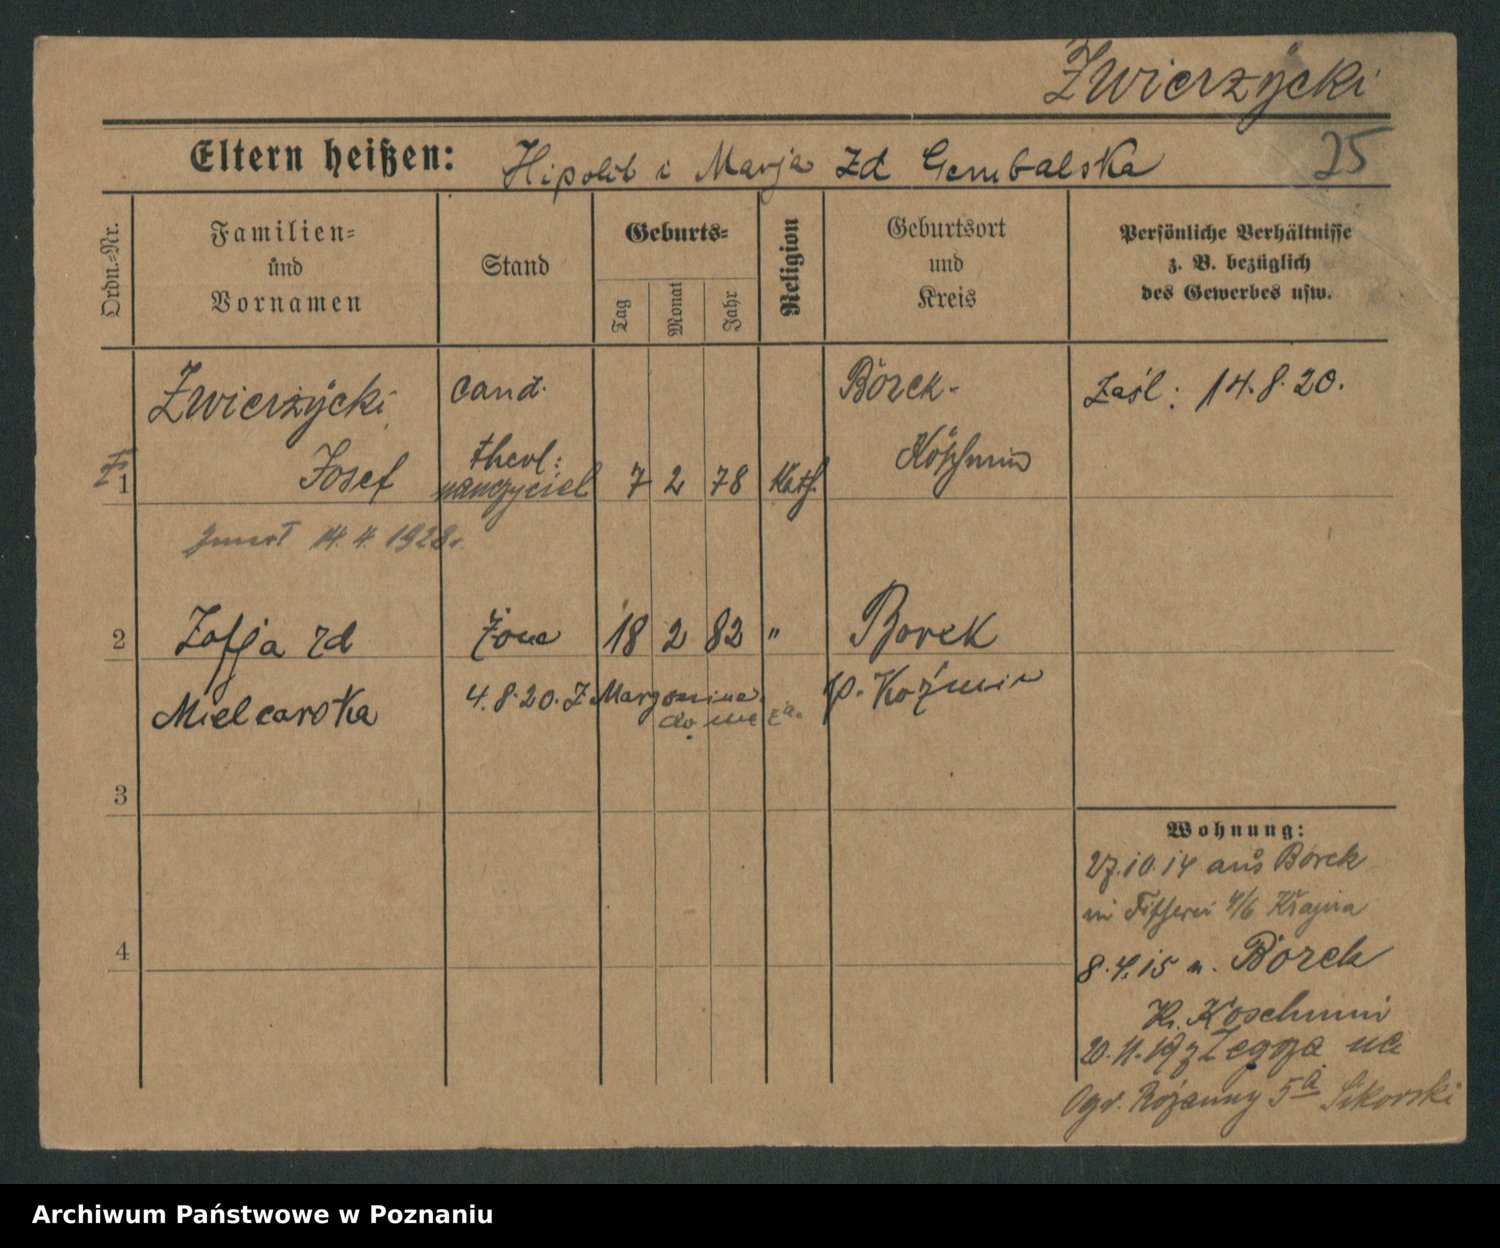 Zwierzycki
Eltern heißen: Hipolit i Marja zd Gembalska
25
Ordn.-Nr.
Familien-
und
Vornamen
Stand
Geburts-
Tag
Monat
Jahr
Religion
Geburtsort
und
Kreis
Persönliche Verhältnisse
z. B. bezüglich
des Gewerbes usw.
Zwierzycki cand. Borek- Zaśl: 14.8.20.
1 Josef theol: nauczyciel 7 2 78 Kath. Koschmin
zmarł 14. 4. 1928 r.
2 Zofja zd żona 18 2 82 " Borek
Mielcarska 4.8.20. z Margonina do męża. p. Koźmin
3
4
Wohnung:
27.10.14 aus Borek
in 4/6 Krajna
8.4.15 n. Borek
Kr. Koschmin
20.11.19 z Zegrza na
Ogr. Różanny 5a Sikorski
Archiwum Państwowe w Poznaniu